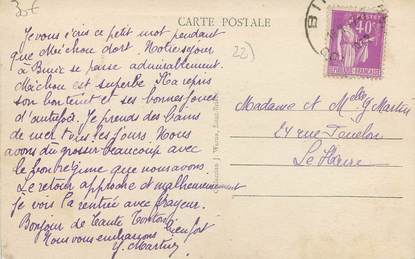 35€
CARTE POSTALE
22)
Je vous écris ce petit mot pendant
que Méchou dort. Notre séjour
à se passe admirablement.
Méchou est superbe il a repris
son bon teint et ses bonnes joues
d'autrefois. Je prends des bains
de mer tous les jours. Nous
avons dû grossir beaucoup avec
le bon régime que nous avons.
Le retour approche et malheureusement
je vois la rentrée avec frayeur.
Bonjour de tante
Nous vous embrassons bien fort
Y. Martin
BI
POSTES
40c
RÉPUBLIQUE FRANÇAISE
Madame et M. G. Martin
24 rue
Le Havre